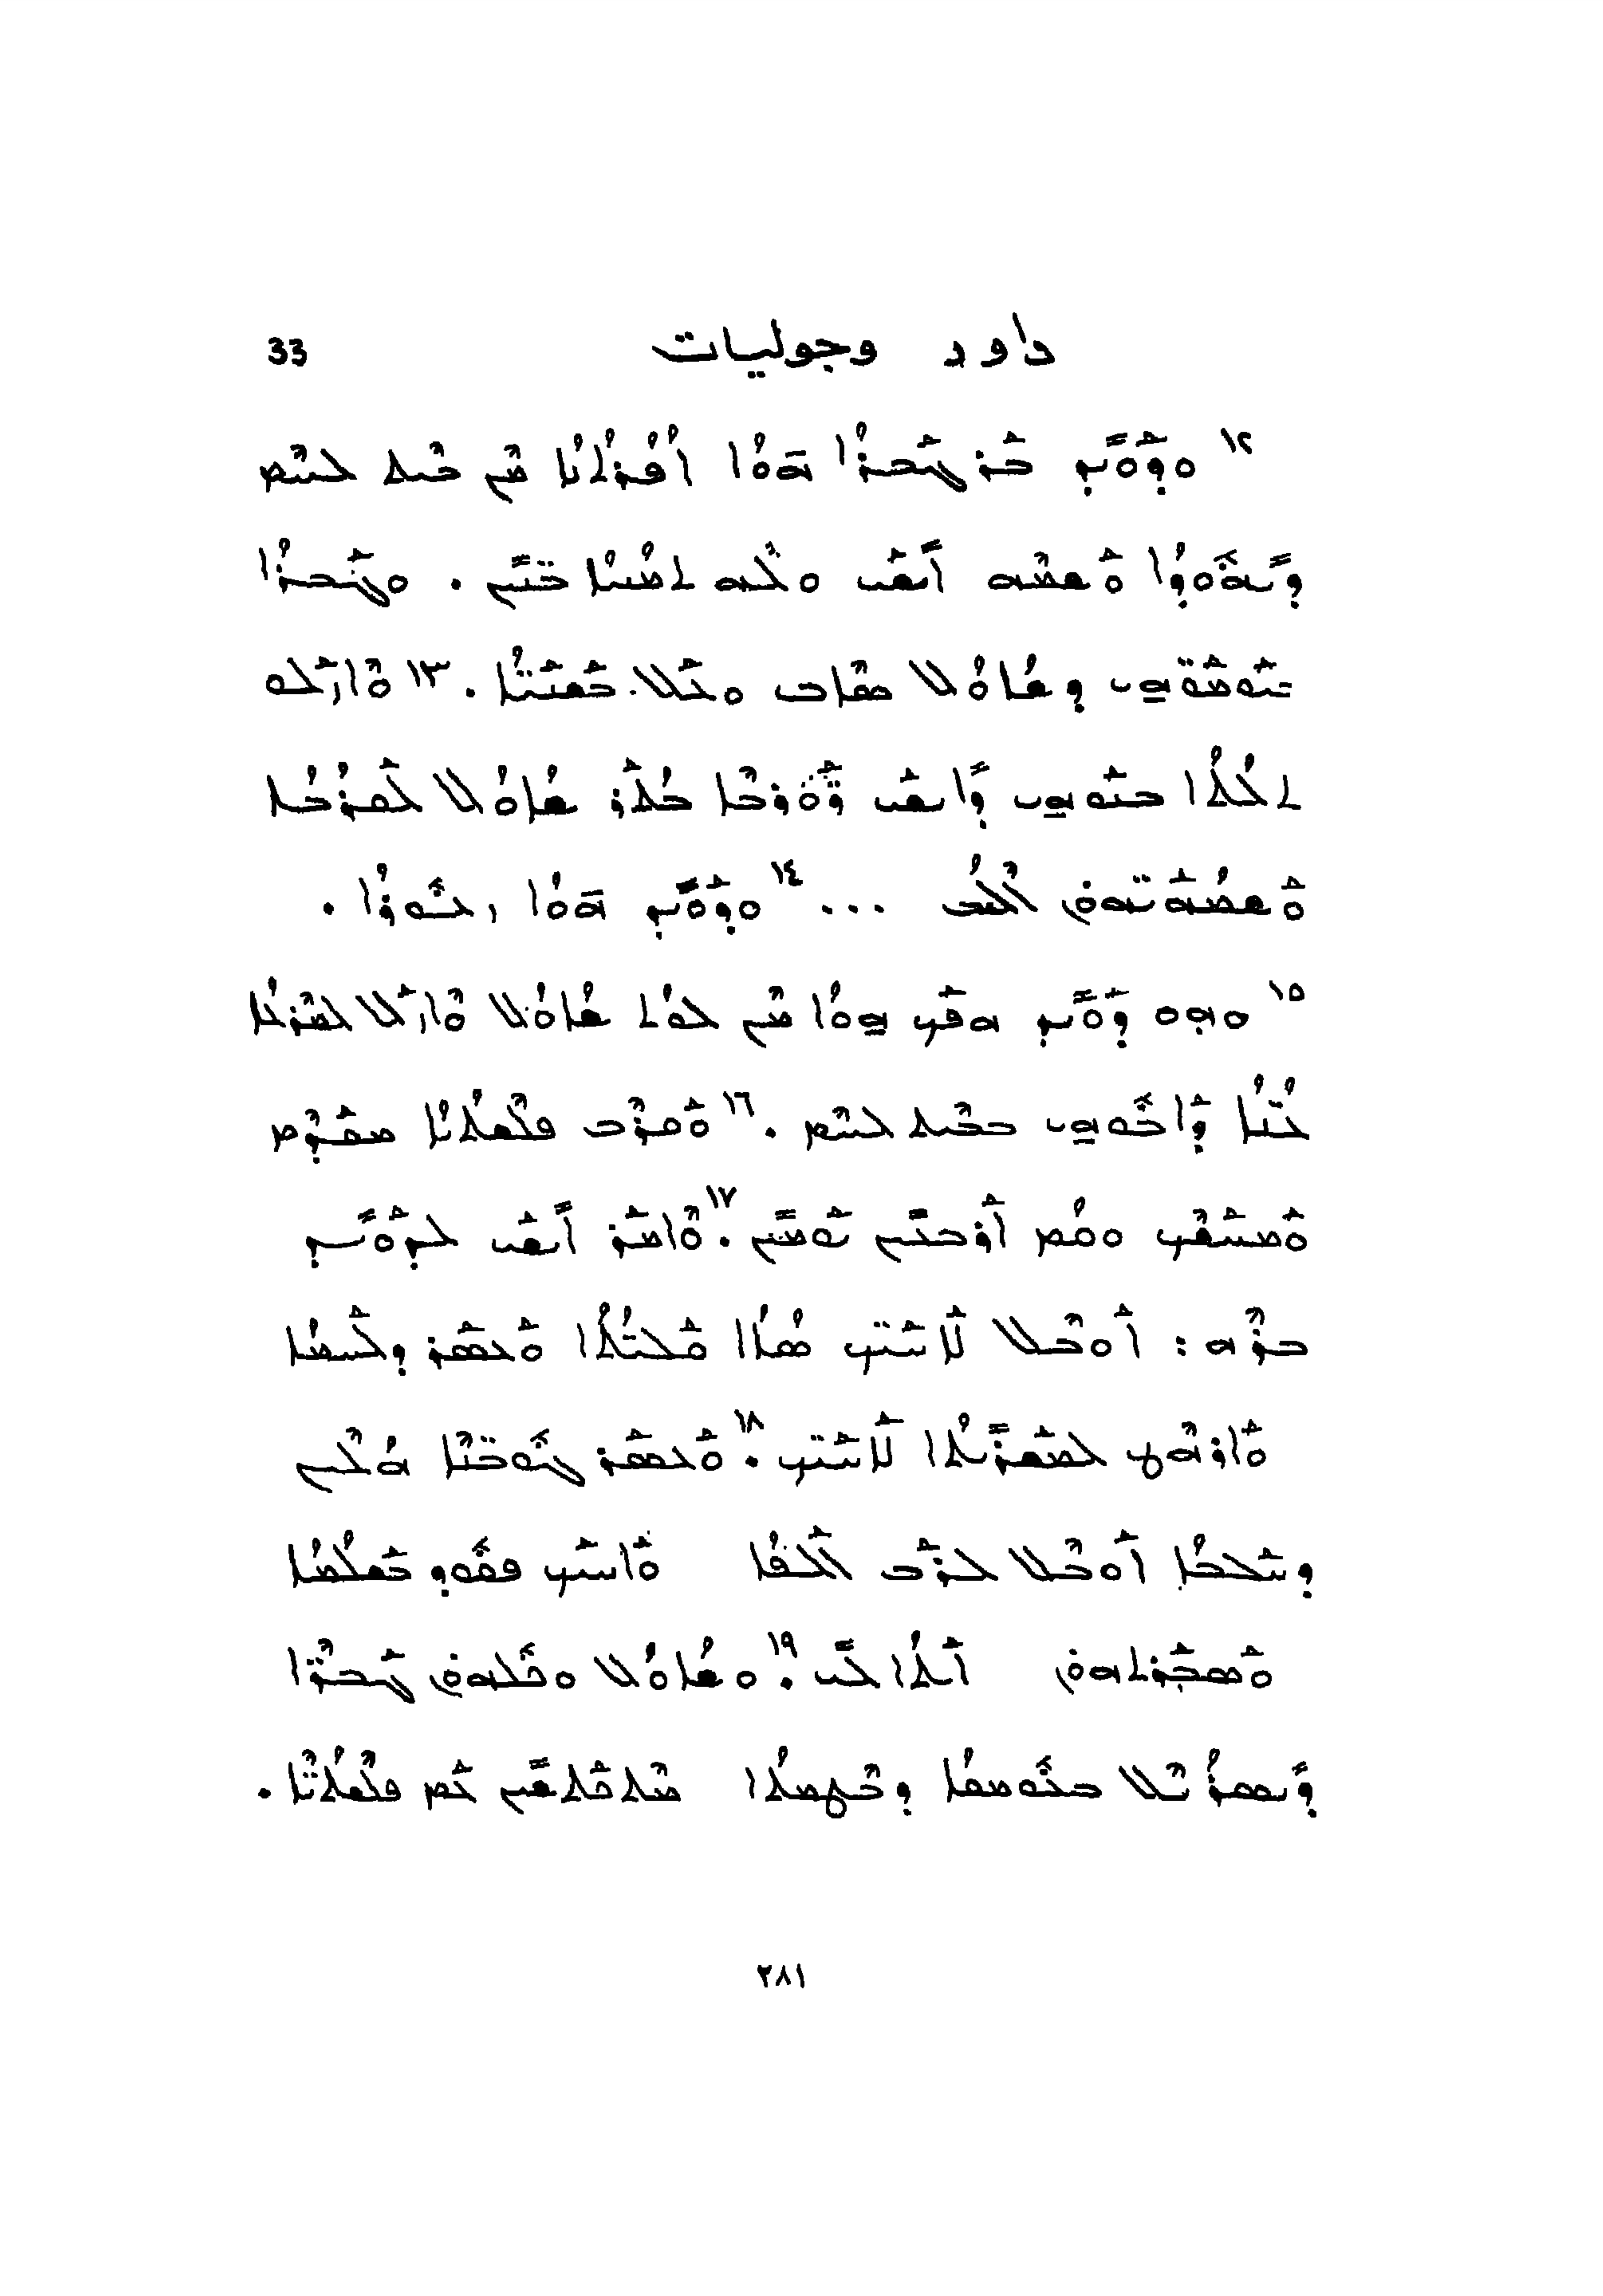 داود وجوليات 33
١٢ ܘܕܰܘܺܝܕ ܒܰܪ ܓܰܒܪܳܐ ܗ̄ܘܳܐ ܐܶܦܪܳܬܳܝܳܐ ܡܶܢ ܒܶܝܬ ܠܚܶܡ
ܕܺܝܗܽܘܕܳܐ ܘܰܫܡܶܗ ܐܺܝܫܰܝ ܘܠܶܗ ܬܡܳܢܝܳܐ ܒܢܺܝ̈ܢ . ܘܓܰܒܪܳܐ
ܒܝܰܘܡܰܘ̈ܗ̱ܝ ܕܫܳܐܘܳܠ ܣܶܐܒ ܘܥܰܠ ܒܰܫܢܰܝ̈ܳܐ . ١٣ ܘܶܐܙܰܠܘ
ܬܠܳܬܳܐ ܒܢܰܘܗ̱ܝ ܕܺܐܝܫܰܝ ܩܰܘܪ̈ܒܶܐ ܒܳܬܰܪ ܫܳܐܘܳܠ ܠܰܩܪܳܒܳܐ
ܘܰܫܡܳܗܰܝ̈ܗܘܢ ܐܶܠܝܳܒ ... ١٤ ܘܕܰܘܺܝܕ ܗ̄ܘܳܐ ܙܥܽܘܪܳܐ .
١٥ ܘܗܘ ܕܰܘܺܝܕ ܗܦܰܟ ܗ̱ܘܳܐ ܡܶܢ ܠܘܳܬ ܫܳܐܘܳܠ ܘܶܐܙܰܠ ܠܡܶܪܥܳܐ
ܥܳܢ̈ܳܐ ܕܰܐܒܽܘܗ̱ܝ ܒܒܶܝܬ ܠܚܶܡ . ١٦ ܘܰܩܪܶܒ ܦܠܶܫܬܳܝܳܐ ܡܩܰܕܶܡ
ܘܰܡܚܰܫܶܟ ܘܩܳܡ ܐܰܪܒܥܺܝܢ ܝܰܘܡܺܝܢ . ١٧ ܘܶܐܡܰܪ ܐܺܝܫܰܝ ܠܕܰܘܺܝܕ
ܒܪܶܗ : ܐܰܘܒܶܠ ܠܰܐܚܰܝ̈ܟ ܣܳܐܬܳܐ ܩܰܠܝܳܬܳܐ ܘܰܥܣܰܪ ܕܠܰܚܡܳܐ
ܘܰܐܪܗܶܛ ܠܡܰܫܪܺܝܬܳܐ ܠܰܐܚܰܝ̈ܟ . ١٨ ܘܰܥܣܰܪ ܓܽܘܒ̈ܢܶܐ ܗܳܠܶܝܢ
ܕܚܰܠܒܳܐ ܐܰܘܒܶܠ ܠܪܰܒ ܐܰܠܦܳܐ ܘܰܐܚܰܝܟ ܦܩܽܘܕ ܒܰܫܠܳܡܳܐ
ܘܰܣܒܰܪܬܗܘܢ ܐܰܝܬܳܐ ܠܺܝ . ١٩ ܘܫܳܐܘܳܠ ܘܟܽܠܗܘܢ ܓܰܒܪ̈ܶܐ
ܕܺܝܣܪܳܝܶܠ ܒܥܽܘܡܩܳܐ ܕܒܶܛܡܬܳܐ ܡܶܬܟܰܬܫܺܝܢ ܥܰܡ ܦܠܶܫܬܳܝ̈ܶܐ .
٢٨١